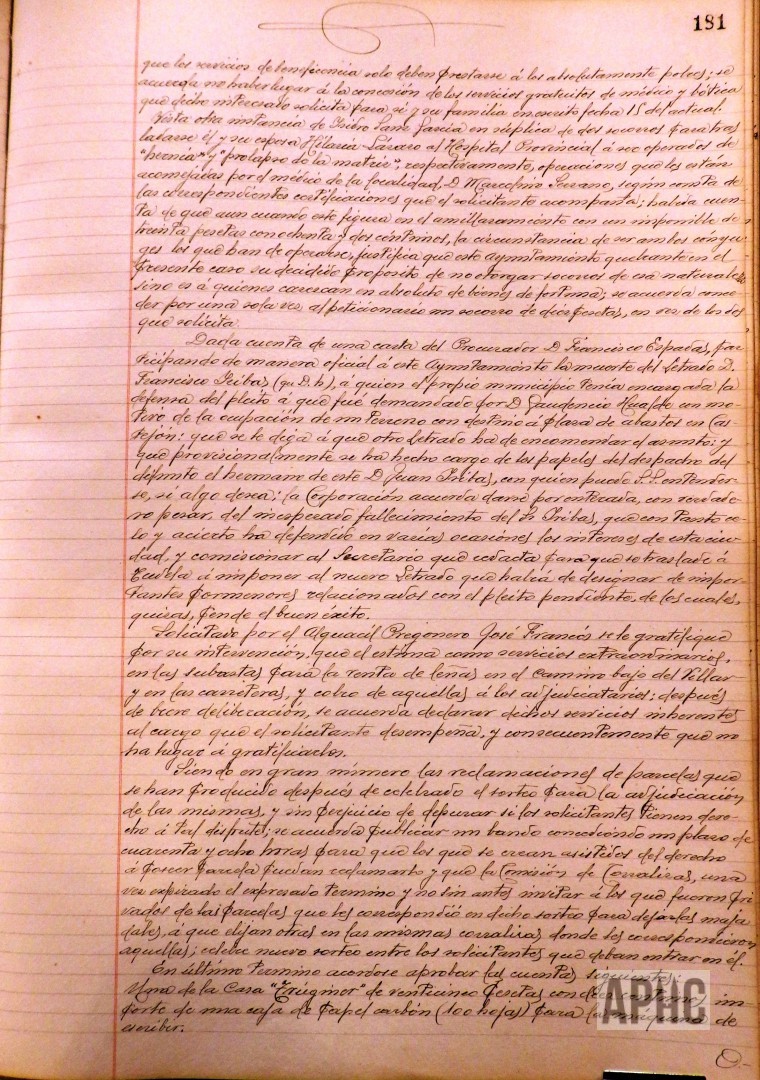 181
que los servicios de beneficencia solo deben prestarse á los absolutamente pobres; se
acuerda no haber lugar á la concesión de los servicios gratuitos de médico y bótica
que dicho interesado solicita para si y su familia en escrito fecha 15 del actual.
Vista otra instancia de Isidro Sanz Garcia en súplica de dos socorros para tras
ladarse él y su esposa Hilaria Lázaro al Hospital Provincial á ser operados de
"hernia" y "prolapso de la matriz", respectivamente, operaciones que les están
aconsejadas por el médico de la localidad, D. Marcelino Serrano, según consta de
las correspondientes certificaciones que el solicitante acompaña; habida cuen-
ta de que aun cuando este figura en el amillaramiento con un imponible de
treinta pesetas con ochenta y dos céntimos, la circunstancia de ser ambos cónyu-
ges los que han de operarse, justifica que este Ayuntamiento quebrante en el
presente caso su decidido propósito de no otorgar socorros de esa naturaleza
sino es á quienes carezcan en absoluto de bienes de fortuna; se acuerda conce-
der por una sola vez al peticionario un socorro de diez pesetas, en vez de los dos
que solicita.
Dada cuenta de una carta del Procurador D. Francisco Espadas, par-
ticipando de manera oficial á este Ayuntamiento la muerte del Letrado D.
Francisco Iribas (q. D. h), á quien el propio municipio tenia encargada la
defensa del pleito á que fué demandado por D. Gaudencio Hualde con mo-
tivo de la ocupación de un terreno con destino á plaza de abastos en Cas-
tejón: que se le diga á que otro Letrado ha de encomendar el asunto; y
que provisionalmente se ha hecho cargo de los papeles del despacho del
difunto el hermano de este D. Juan Iribas, con quien puede S.S. entender-
se, si algo desea: la Corporación acuerda darse por enterada, con verdade-
ro pesar, del inesperado fallecimiento del Sr. Iribas, que con tanto ce-
lo y acierto ha defendido en varias ocasiones los intereses de esta ciu-
dad, y comisionar al Secretario que redacta para que se traslade á
Tudela á imponer al nuevo Letrado que habrá de designar de impor-
tantes pormenores relacionados con el pleito pendiente, de los cuales,
quizas, pende el buen éxito.
Solicitado por el Alguacil Pregonero José Francés se le gratifique
por su intervención, que el estima como servicios extraordinarios,
en las subastas para la venta de leñas en el camino bajo del Villar
y en las carreteras, y cobro de aquellas á los adjudicatarios; después
de breve deliberación, se acuerda declarar dichos servicios inherentes
al cargo que el solicitante desempeña, y consecuentemente que no
ha lugar á gratificarlos.
Siendo en gran número las reclamaciones de parcelas que
se han producido después de celebrado el sorteo para la adjudicación
de las mismas, y sin perjuicio de depurar si los solicitantes tienen dere-
cho á tal disfrute; se acuerda publicar un bando concediendo un plazo de
cuarenta y ocho horas para que los que se crean asistidos del derecho
á poseer parcela puedan reclamarlo y que la Comisión de Corralizas, una
vez expirado el expresado termino y no sin antes invitar á los que fueron pri-
vados de las parcelas que les correspondió en dicho sorteo para dejarlas maja
dales, á que elijan otras en las mismas corralizas donde les correspondieron
aquellas; celebre nuevo sorteo entre los solicitantes que deban entrar en él.
En último termino acordose aprobar las cuentas siguientes:
Una de la Casa "Trúginor" de venticinco pesetas con diez centimos im-
porte de una caja de papel carbón (100 hojas) para la máquina de
escribir.
APHC